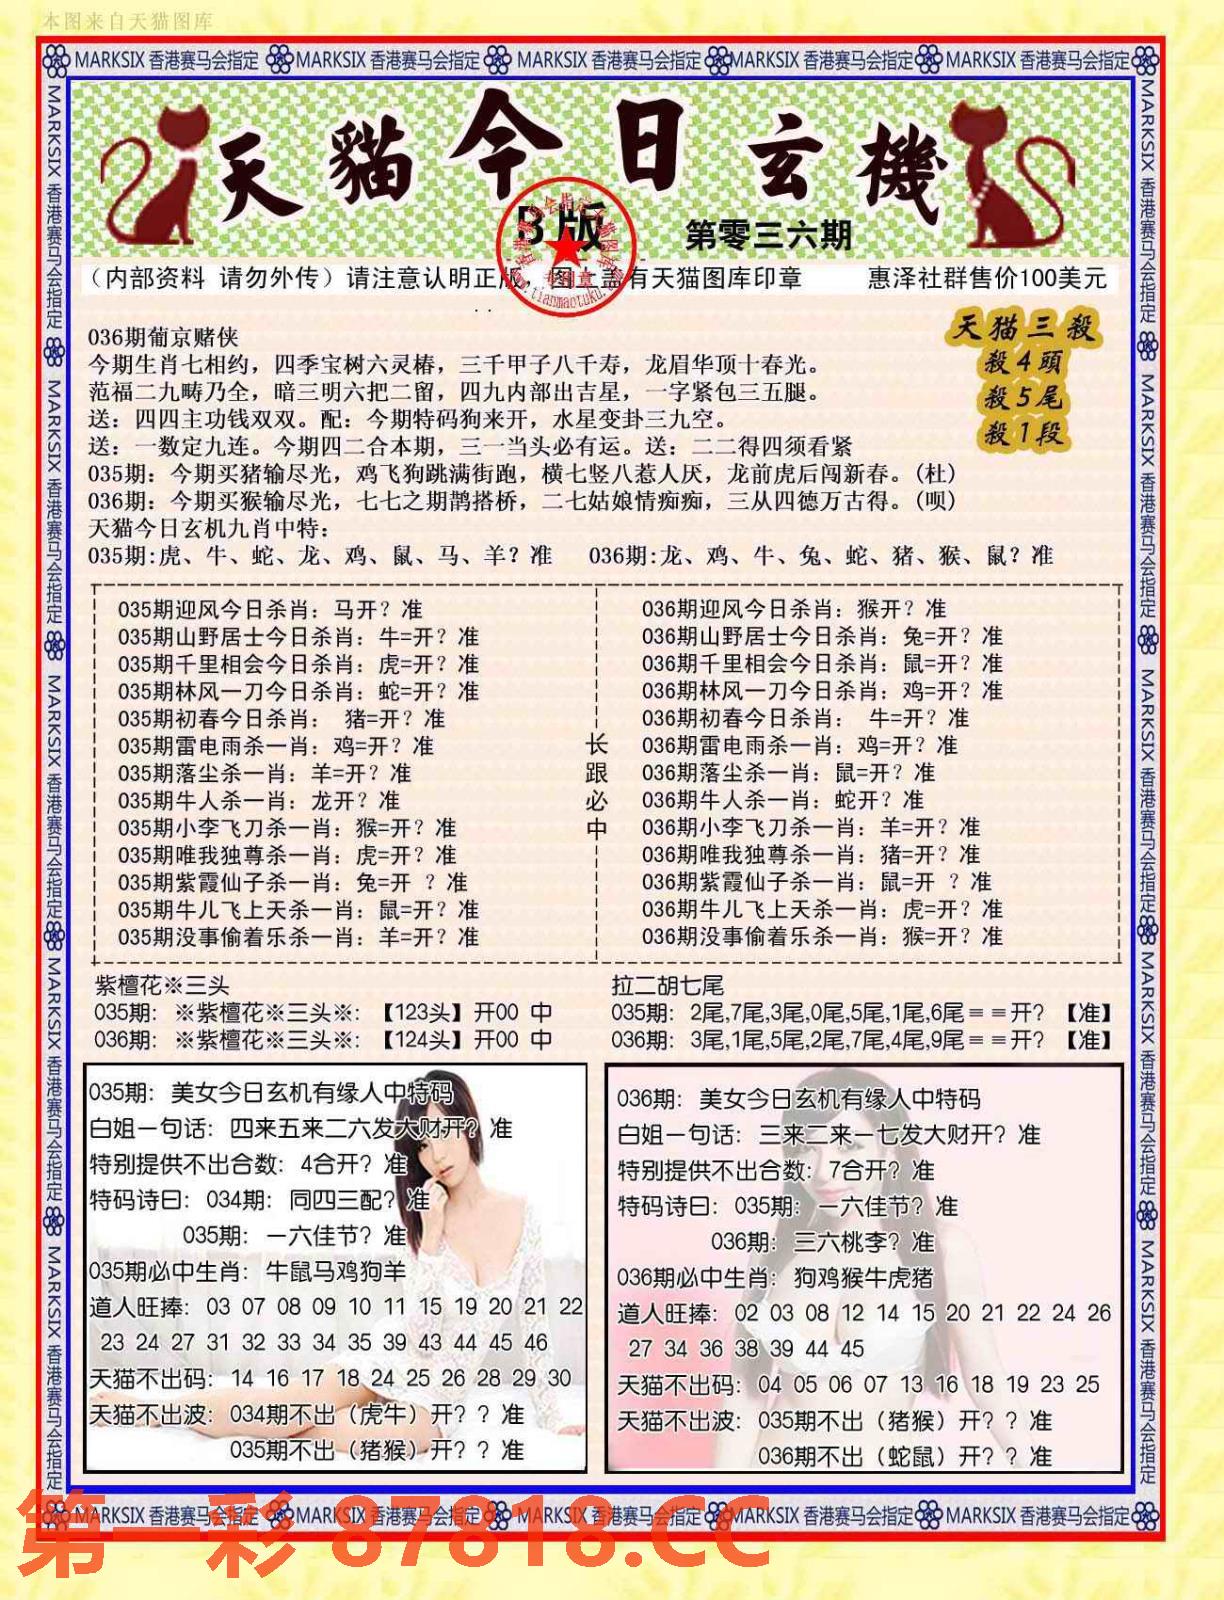 本图来自天猫图库
MARKSIX 香港赛马会指定 MARKSIX 香港赛马会指定 MARKSIX 香港赛马会指定 MARKSIX 香港赛马会指定 MARKSIX 香港赛马会指定
天貓今日玄機
B版
第零三六期
（内部资料 请勿外传）请注意认明正版 图 有天猫图库印章 惠泽社群售价100美元
天猫三殺
殺4頭
殺5尾
殺1段
036期葡京赌侠
今期生肖七相约，四季宝树六灵椿，三千甲子八千寿，龙眉华顶十春光。
范福二九畴乃全，暗三明六把二留，四九内部出吉星，一字紧包三五腿。
送：四四主功钱双双。配：今期特码狗来开，水星变卦三九空。
送：一数定九连。今期四二合本期，三一当头必有运。送：二二得四须看紧
035期：今期买猪输尽光，鸡飞狗跳满街跑，横七竖八惹人厌，龙前虎后闯新春。(杜)
036期：今期买猴输尽光，七七之期鹊搭桥，二七姑娘情痴痴，三从四德万古得。(呗)
天猫今日玄机九肖中特：
035期:虎、牛、蛇、龙、鸡、鼠、马、羊？准 036期:龙、鸡、牛、兔、蛇、猪、猴、鼠？准
035期迎风今日杀肖：马开？准
035期山野居士今日杀肖：牛=开？准
035期千里相会今日杀肖：虎=开？准
035期林风一刀今日杀肖：蛇=开？准
035期初春今日杀肖： 猪=开？准
035期雷电雨杀一肖：鸡=开？准
035期落尘杀一肖：羊=开？准
035期牛人杀一肖：龙开？准
035期小李飞刀杀一肖：猴=开？准
035期唯我独尊杀一肖：虎=开？准
035期紫霞仙子杀一肖：兔=开 ？准
035期牛儿飞上天杀一肖：鼠=开？准
035期没事偷着乐杀一肖：羊=开？准
长
跟
必
中
036期迎风今日杀肖：猴开？准
036期山野居士今日杀肖：兔=开？准
036期千里相会今日杀肖：鼠=开？准
036期林风一刀今日杀肖：鸡=开？准
036期初春今日杀肖： 牛=开？准
036期雷电雨杀一肖：鸡=开？准
036期落尘杀一肖：鼠=开？准
036期牛人杀一肖：蛇开？准
036期小李飞刀杀一肖：羊=开？准
036期唯我独尊杀一肖：猪=开？准
036期紫霞仙子杀一肖：鼠=开 ？准
036期牛儿飞上天杀一肖：虎=开？准
036期没事偷着乐杀一肖：猴=开？准
紫檀花※三头
035期：※紫檀花※三头※：【123头】开00 中
036期：※紫檀花※三头※：【124头】开00 中
拉二胡七尾
035期：2尾,7尾,3尾,0尾,5尾,1尾,6尾＝＝开？【准】
036期：3尾,1尾,5尾,2尾,7尾,4尾,9尾＝＝开？【准】
035期：美女今日玄机有缘人中特码
白姐一句话：四来五来二六发大财开？准
特别提供不出合数：4合开？准
特码诗曰：034期：同四三配？准
035期：一六佳节？准
035期必中生肖：牛鼠马鸡狗羊
道人旺捧：03 07 08 09 10 11 15 19 20 21 22
23 24 27 31 32 33 34 35 39 43 44 45 46
天猫不出码：14 16 17 18 24 25 26 28 29 30
天猫不出波：034期不出（虎牛）开？？准
035期不出（猪猴）开？？准
036期：美女今日玄机有缘人中特码
白姐一句话：三来二来一七发大财开？准
特别提供不出合数：7合开？准
特码诗曰：035期：一六佳节？准
036期：三六桃李？准
036期必中生肖：狗鸡猴牛虎猪
道人旺捧：02 03 08 12 14 15 20 21 22 24 26
27 34 36 38 39 44 45
天猫不出码：04 05 06 07 13 16 18 19 23 25
天猫不出波：035期不出（猪猴）开？？准
036期不出（蛇鼠）开？？准
MARKSIX 香港赛马会指定 MARKSIX 香港赛马会指定 MARKSIX 香港赛马会指定 MARKSIX 香港赛马会指定 MARKSIX 香港赛马会指定
第一彩 87818.CC